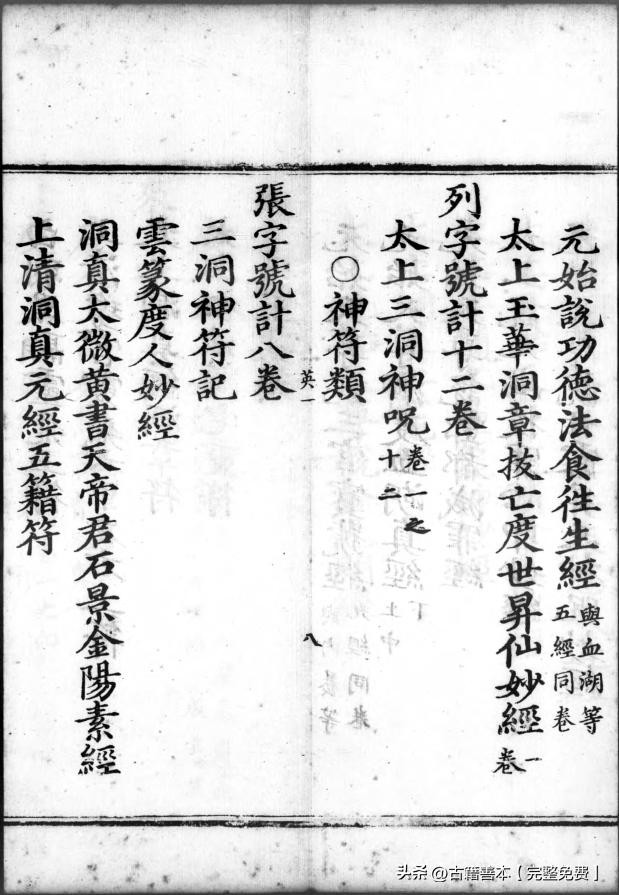 元始說功德法食徃生經 與血湖等五經同卷
太上玉華洞章拔亡度世昇仙妙經 一卷
列字號計十二卷
太上三洞神呪 卷一之十二
○神符類
英一
八
張字號計八卷
三洞神符記
雲篆度人妙經
洞真太微黃書天帝君石景金陽素經
上清洞真元經五籍符
头条 @古籍善本【完整免费】